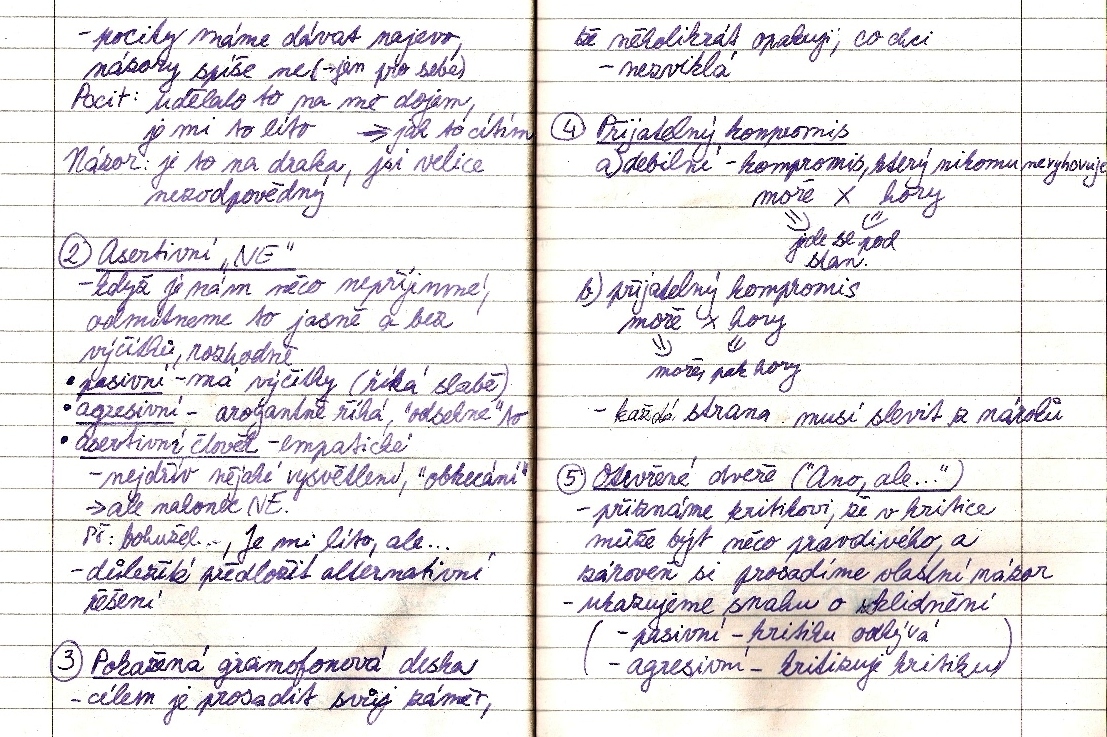 - pocity máme dávat najevo,
názory spíše ne (-jen pro sebe)
Pocit: udělalo to na mě dojem,
je mi to líto ⇒ jak to cítím
Názor: je to na draka, jsi velice
nezodpovědný
② Asertivní „NE"
- když je nám něco nepříjemné,
odmítneme to jasně a bez
výčitků, rozhodně
• pasivní - má výčitky (říká slabě)
• agresivní - arogantně říká, "odsekne" to
• asertivní člověk - empatické
- nejdřív nějaké vysvětlení, "obkecání"
⇒ ale nakonec NE.
Př: bohužel..., Je mi líto, ale...
- důležité předložit alternativní
řešení
③ Pokažená gramofonová deska
- cílem je prosadit svůj záměr,
že několikrát opakuji, co chci
- nezviklá
④ Přijatelný kompromis
a) debilní - kompromis, který nikomu nevyhovuje
moře x hory
jde se pod
stan.
b) přijatelný kompromis
moře x hory
moře, pak hory
- každá strana musí slevit z nároků
⑤ Otevřené dveře ("Ano, ale...")
- přiznáme kritikovi, že v kritice
může být něco pravdivého, a
zároveň si prosadíme vlastní názor
- ukazujeme snahu o zklidnění
( - pasivní - kritiku odbývá
- agresivní - kritizuje kritiku)